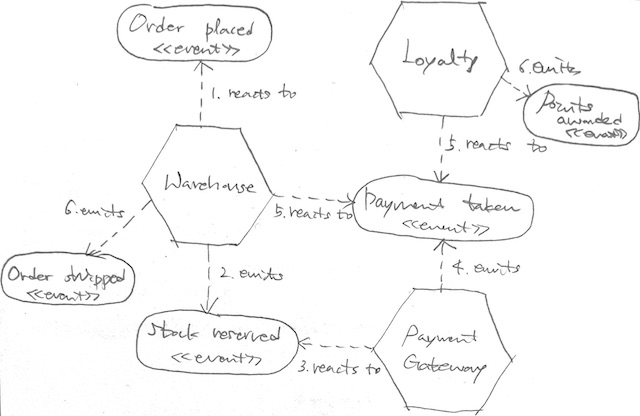 Order placed
<<event>>
Loyalty
6. emits
Points
awarded
<<event>>
1. reacts to
5. reacts to
Warehouse
5. reacts to
Payment taken
<<event>>
6. emits
Order shipped
<<event>>
2. emits
4. emits
Stock reserved
<<event>>
3. reacts to
Payment
Gateway